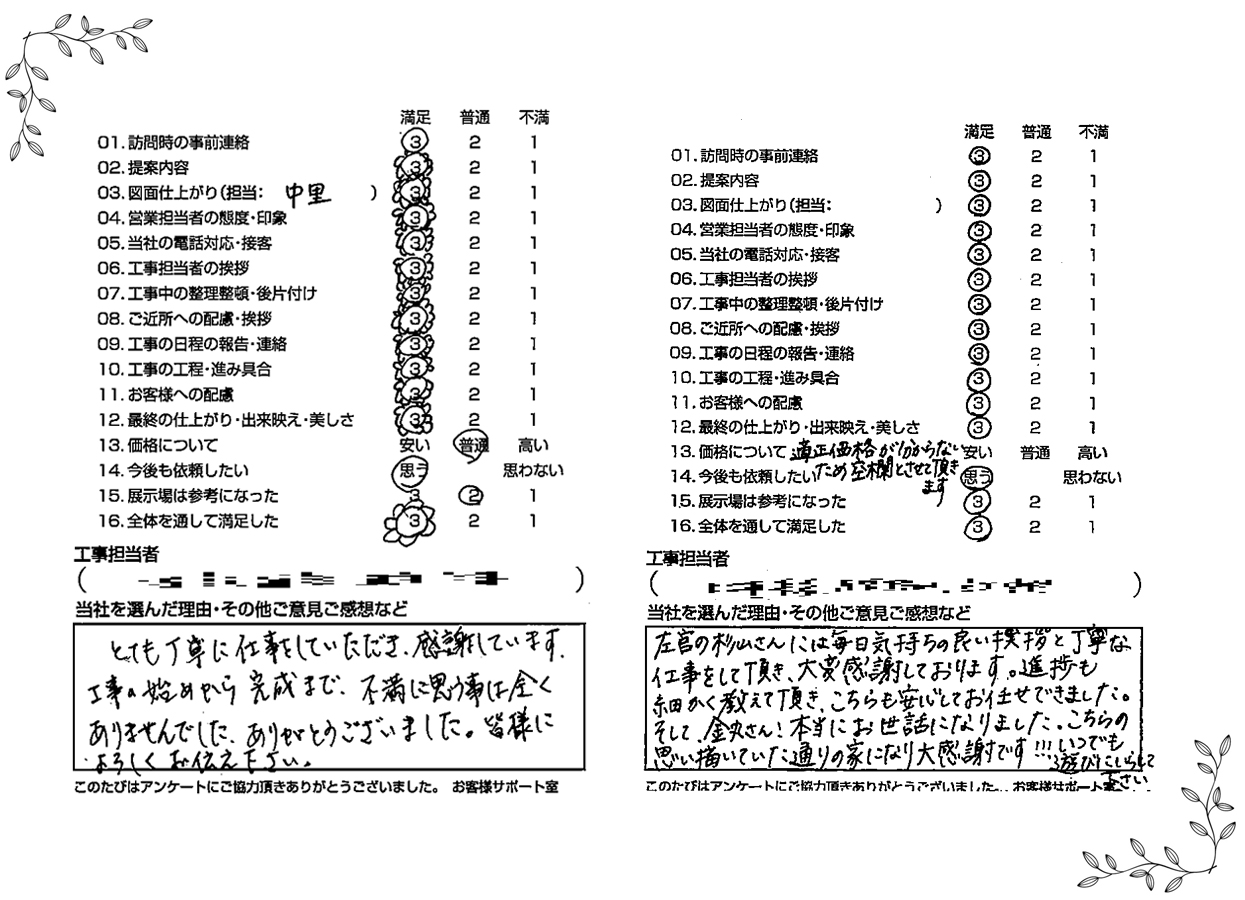 満足 普通 不満
01.訪問時の事前連絡 3 2 1
02.提案内容 3 2 1
03.図面仕上がり(担当: 中里 ) 3 2 1
04.営業担当者の態度・印象 3 2 1
05.当社の電話対応・接客 3 2 1
06.工事担当者の挨拶 3 2 1
07.工事中の整理整頓・後片付け 3 2 1
08.ご近所への配慮・挨拶 3 2 1
09.工事の日程の報告・連絡 3 2 1
10.工事の工程・進み具合 3 2 1
11.お客様への配慮 3 2 1
12.最終の仕上がり・出来映え・美しさ 3 2 1
13.価格について 安い 普通 高い
14.今後も依頼したい 思う 思わない
15.展示場は参考になった 3 2 1
16.全体を通して満足した 3 2 1
工事担当者
( )
当社を選んだ理由・その他ご意見ご感想など
とても丁寧に仕事をしていただき、感謝しています。
工事の始めから完成まで、不満に思う事は全く
ありませんでした。ありがとうございました。皆様に
よろしくお伝え下さい。
このたびはアンケートにご協力頂きありがとうございました。 お客様サポート室
満足 普通 不満
01.訪問時の事前連絡 3 2 1
02.提案内容 3 2 1
03.図面仕上がり(担当: ) 3 2 1
04.営業担当者の態度・印象 3 2 1
05.当社の電話対応・接客 3 2 1
06.工事担当者の挨拶 3 2 1
07.工事中の整理整頓・後片付け 3 2 1
08.ご近所への配慮・挨拶 3 2 1
09.工事の日程の報告・連絡 3 2 1
10.工事の工程・進み具合 3 2 1
11.お客様への配慮 3 2 1
12.最終の仕上がり・出来映え・美しさ 3 2 1
13.価格について 適正価格が分からない 安い 普通 高い
14.今後も依頼したい ため空欄とさせて頂き 思う 思わない
ます
15.展示場は参考になった 3 2 1
16.全体を通して満足した 3 2 1
工事担当者
( )
当社を選んだ理由・その他ご意見ご感想など
左官の杉山さんには毎日気持ちの良い挨拶と丁寧な
仕事をして頂き、大変感謝しております。進捗も
細かく教えて頂き、こちらも安心してお任せできました。
そして、金央さん!本当にお世話になりました。こちらの
思い描いていた通りの家になり大感謝です!!!いつでも
遊びにいらして
下さい
このたびはアンケートにご協力頂きありがとうございました。 お客様サポート室